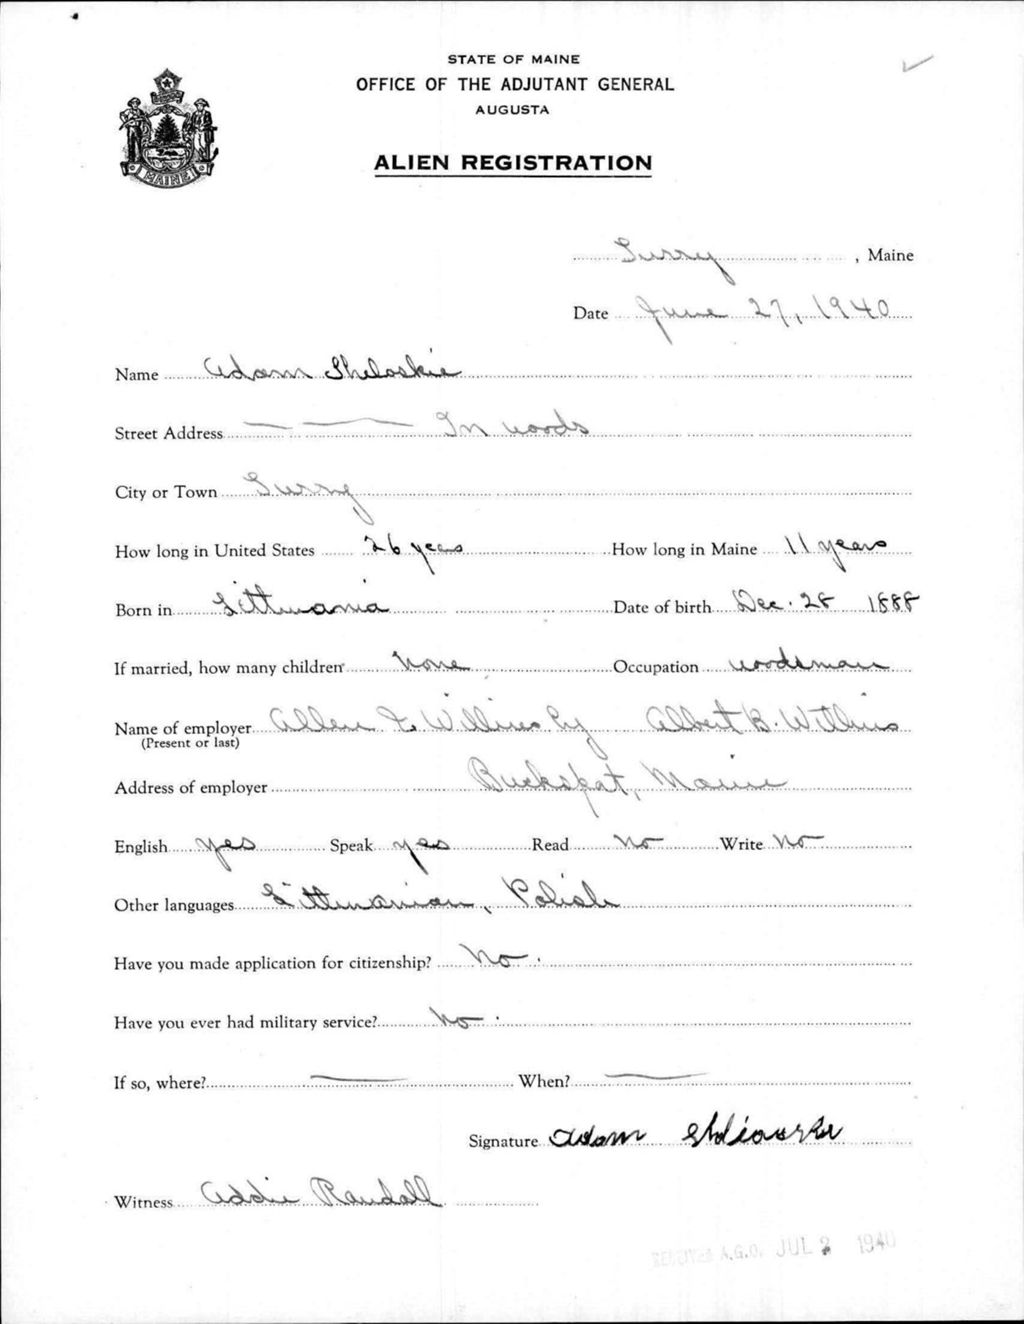 STATE OF MAINE
OFFICE OF THE ADJUTANT GENERAL
AUGUSTA
ALIEN REGISTRATION
MAINE
Surry, Maine
Date June 27, 1940
Name Adam Sheloskie
Street Address In woods
City or Town Surry
How long in United States 26 years How long in Maine 11 years
Born in Littuania Date of birth Dec. 28 1888
If married, how many children None Occupation woodsman
Name of employer Allen Albert B.
(Present or last)
Address of employer Bucksport, Maine
English yes Speak yes Read No Write No
Other languages Littuanian, Polish
Have you made application for citizenship? No.
Have you ever had military service? No.
If so, where? When?
Signature Adam
Witness Addie Randall
RECEIVED A.G.O. JUL 2 1940